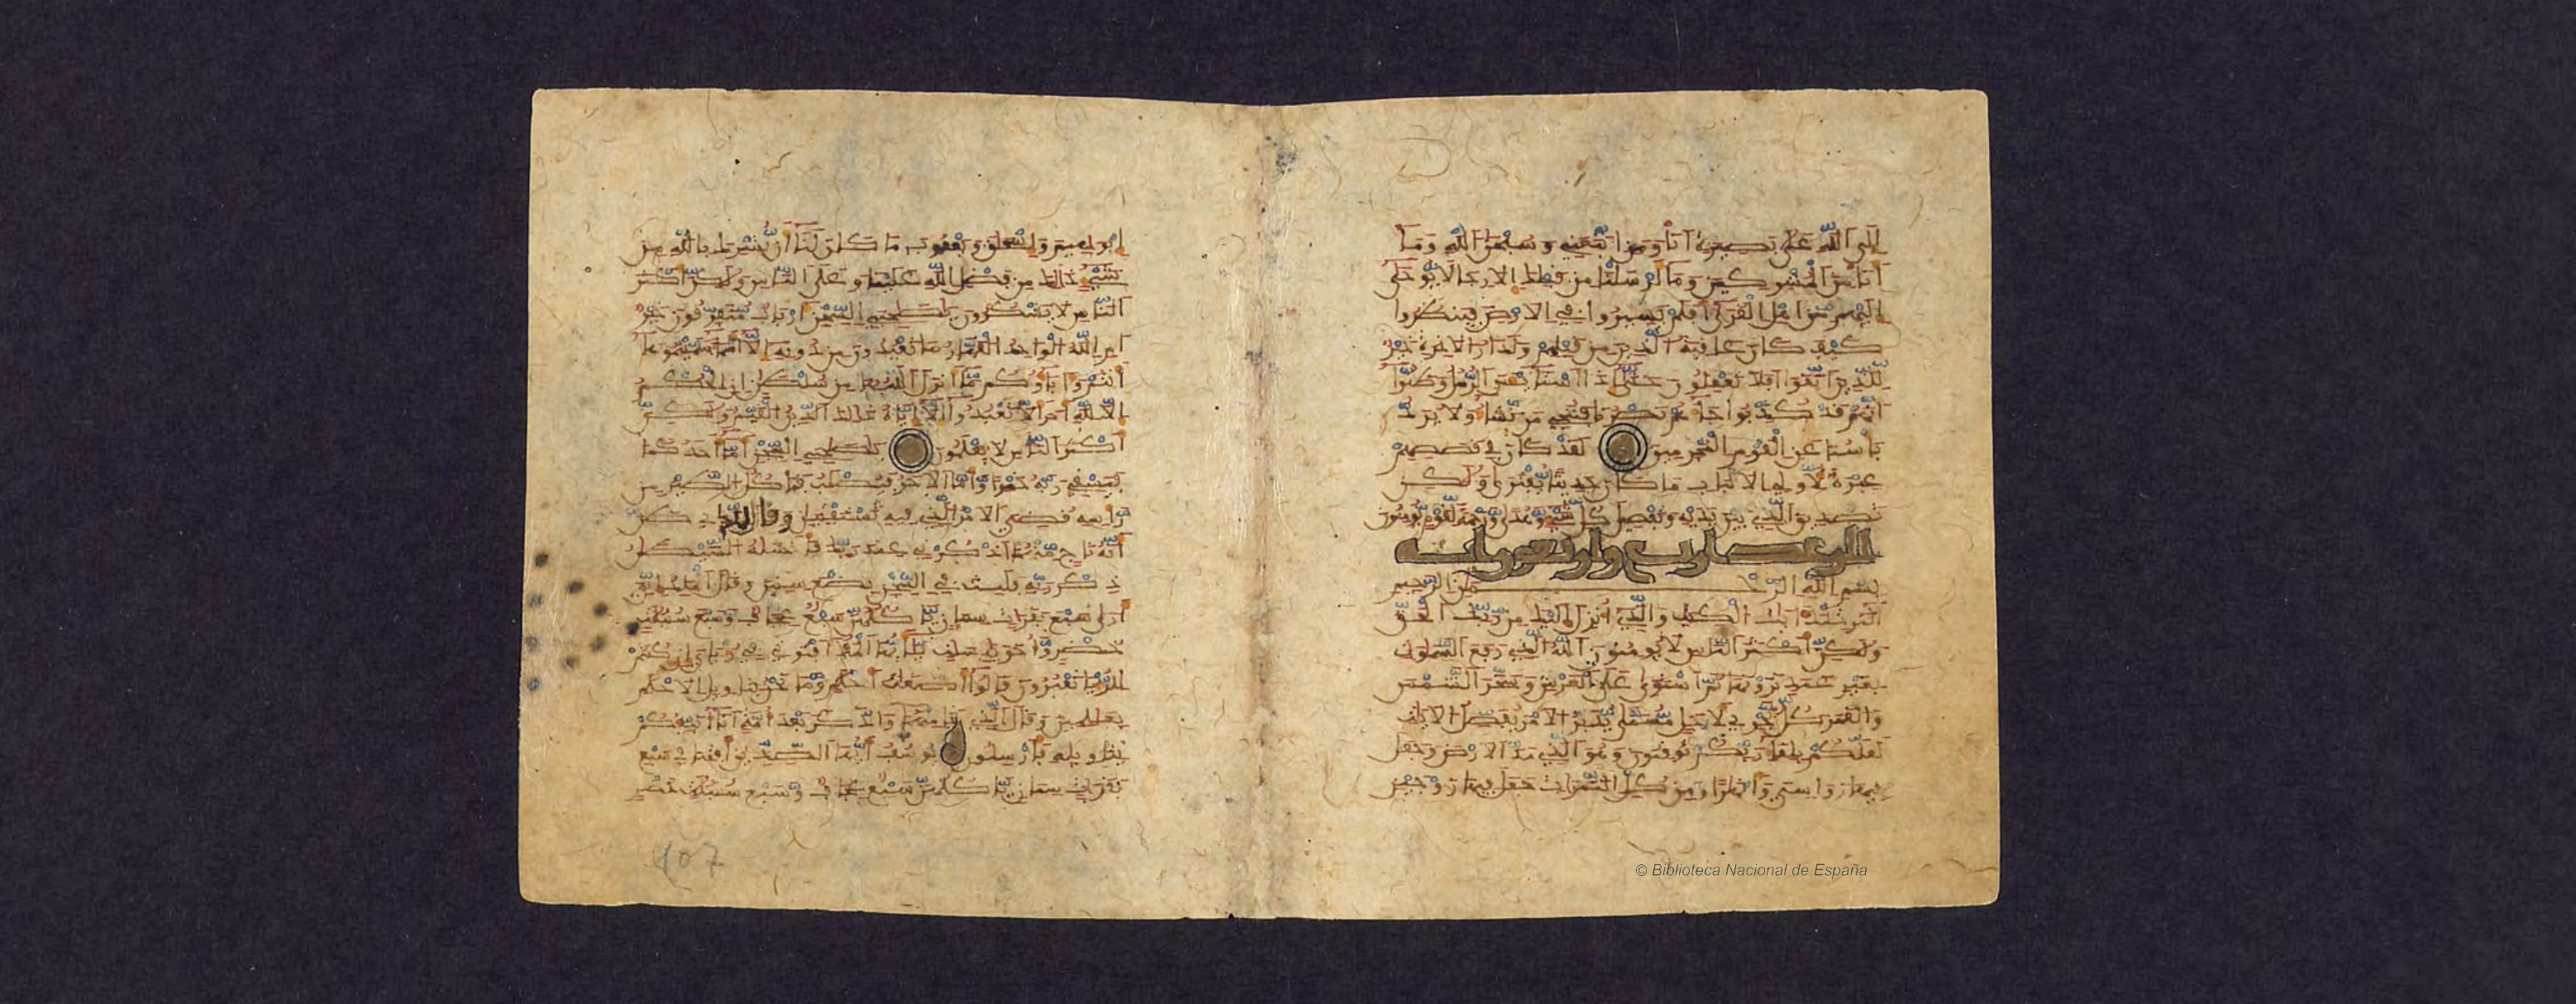 الى الله على بصيرة انا ومن اتبعني وسبحن الله وما
انا من المشركين وما ارسلنا من قبلك الا رجالا يوحى
اليهم من اهل القرى افلم يسيروا في الارض فينظروا
كيف كان عاقبة الذين من قبلهم ولدار الاخرة خير
للذين اتقوا افلا تعقلون حتى اذا استيس الرسل وظنوا
انهم قد كذبوا جاءهم نصرنا فننجي من نشاء ولا يرد
باسنا عن القوم المجرمين لقد كان في قصصهم
عبرة لاولي الالباب ما كان حديثا يفترى ولكن
تصديق الذي بين يديه وتفصيل كل شيء وهدى ورحمة لقوم يومنون
الرعد اربع واربعون اية
بسم الله الرحمن الرحيم
المر تلك ايت الكتب والذي انزل اليك من ربك الحق
ولكن اكثر الناس لا يومنون الله الذي رفع السموت
بغير عمد ترونها ثم استوى على العرش وسخر الشمس
والقمر كل يجري لاجل مسمى يدبر الامر يفصل الايت
لعلكم بلقاء ربكم توقنون وهو الذي مد الارض وجعل
فيها رواسي وانهرا ومن كل الثمرات جعل فيها زوجين
ابرهيم واسحق ويعقوب ما كان لنا ان نشرك بالله من
شيء ذلك من فضل الله علينا وعلى الناس ولكن اكثر
الناس لا يشكرون يصحبي السجن ارباب متفرقون خير
ام الله الواحد القهار ما تعبدون من دونه الا اسماء سميتموها
انتم واباوكم ما انزل الله بها من سلطن ان الحكم
الا لله امر الا تعبدوا الا اياه ذلك الدين القيم ولكن
اكثر الناس لا يعلمون يصحبي السجن اما احدكما
فيسقي ربه خمرا واما الاخر فيصلب فتاكل الطير من
راسه قضي الامر الذي فيه تستفتين وقال للذي ظن
انه ناج منهما اذكرني عند ربك فانسله الشيطن
ذكر ربه فلبث في السجن بضع سنين وقال الملك اني
ارى سبع بقرات سمان ياكلهن سبع عجاف وسبع سنبلت
خضر واخر يابسات يايها الملا افتوني في رءياي ان كنتم
للرءيا تعبرون قالوا اضغث احلم وما نحن بتاويل الاحلم
بعلمين وقال الذي نجا منهما وادكر بعد امة انا انبئكم
بتاويله فارسلون يوسف ايها الصديق افتنا في سبع
بقرات سمان ياكلهن سبع عجاف وسبع سنبلت خضر
407
© Biblioteca Nacional de España